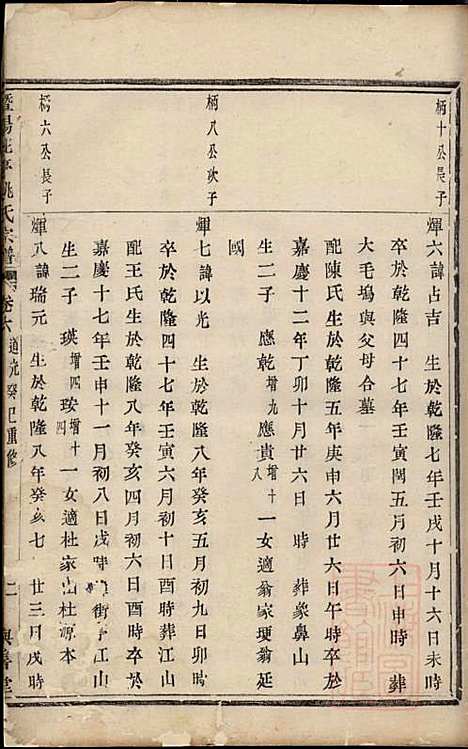 柄十公長子
煇六諱占吉 生於乾隆七年壬戌十月十六日未時
卒於乾隆四十七年壬寅閏五月初六日申時 葬
大毛塢與父母合墓
配陳氏生於乾隆五年庚申六月廿六日午時卒於
嘉慶十二年丁卯十月廿六日 時 葬象鼻山
生二子 應乾增九 應貴增十八 一女適翁家埂翁延
國
柄八公次子
煇七諱以光 生於乾隆八年癸亥五月初九日卯時
卒於乾隆四十七年壬寅六月初十日酉時葬江山
配王氏生於乾隆八年癸亥四月初六日酉時卒於
嘉慶十七年壬申十一月初八日戌時 衝 江山
生二子 瑛增四 垵增十四 一女適杜家山杜源本
柄六公長子
煇八諱瑞元 生於乾隆八年癸亥七 廿三日戌時
暨陽 姚氏宗譜 卷六 道光癸巳重修 二